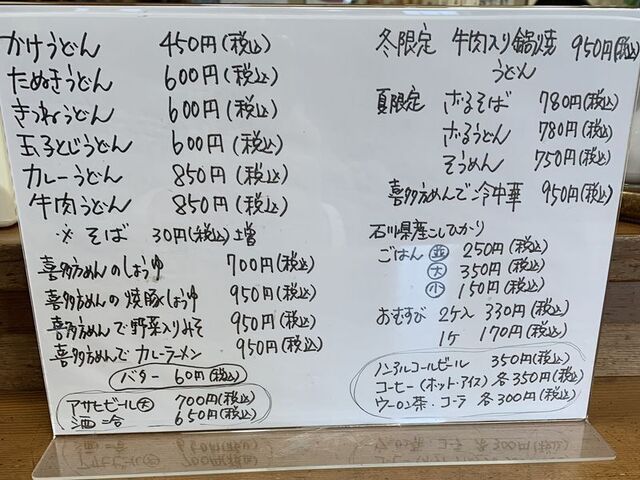 かけうどん 450円(税込)
たぬきうどん 600円(税込)
きつねうどん 600円(税込)
玉子とじうどん 600円(税込)
カレーうどん 850円(税込)
牛肉うどん 850円(税込)
※そば 30円(税込)増
喜多方めんのしょうゆ 700円(税込)
喜多方めんの焼豚しょうゆ 950円(税込)
喜多方めんで野菜入りみそ 950円(税込)
喜多方めんでカレーラーメン 950円(税込)
バター 60円(税込)
アサヒビール大 700円(税込)
酒二合 650円(税込)
冬限定 牛肉入り鍋焼 950円(税込)
うどん
夏限定 ざるそば 780円(税込)
ざるうどん 780円(税込)
そうめん 750円(税込)
喜多方めんで冷中華 950円(税込)
石川県産こしひかり
ごはん 並 250円(税込)
大 350円(税込)
小 150円(税込)
おむすび 2ケ入 330円(税込)
1ケ 170円(税込)
ノンアルコールビール 350円(税込)
コーヒー(ホット・アイス) 各350円(税込)
ウーロン茶・コーラ 各300円(税込)